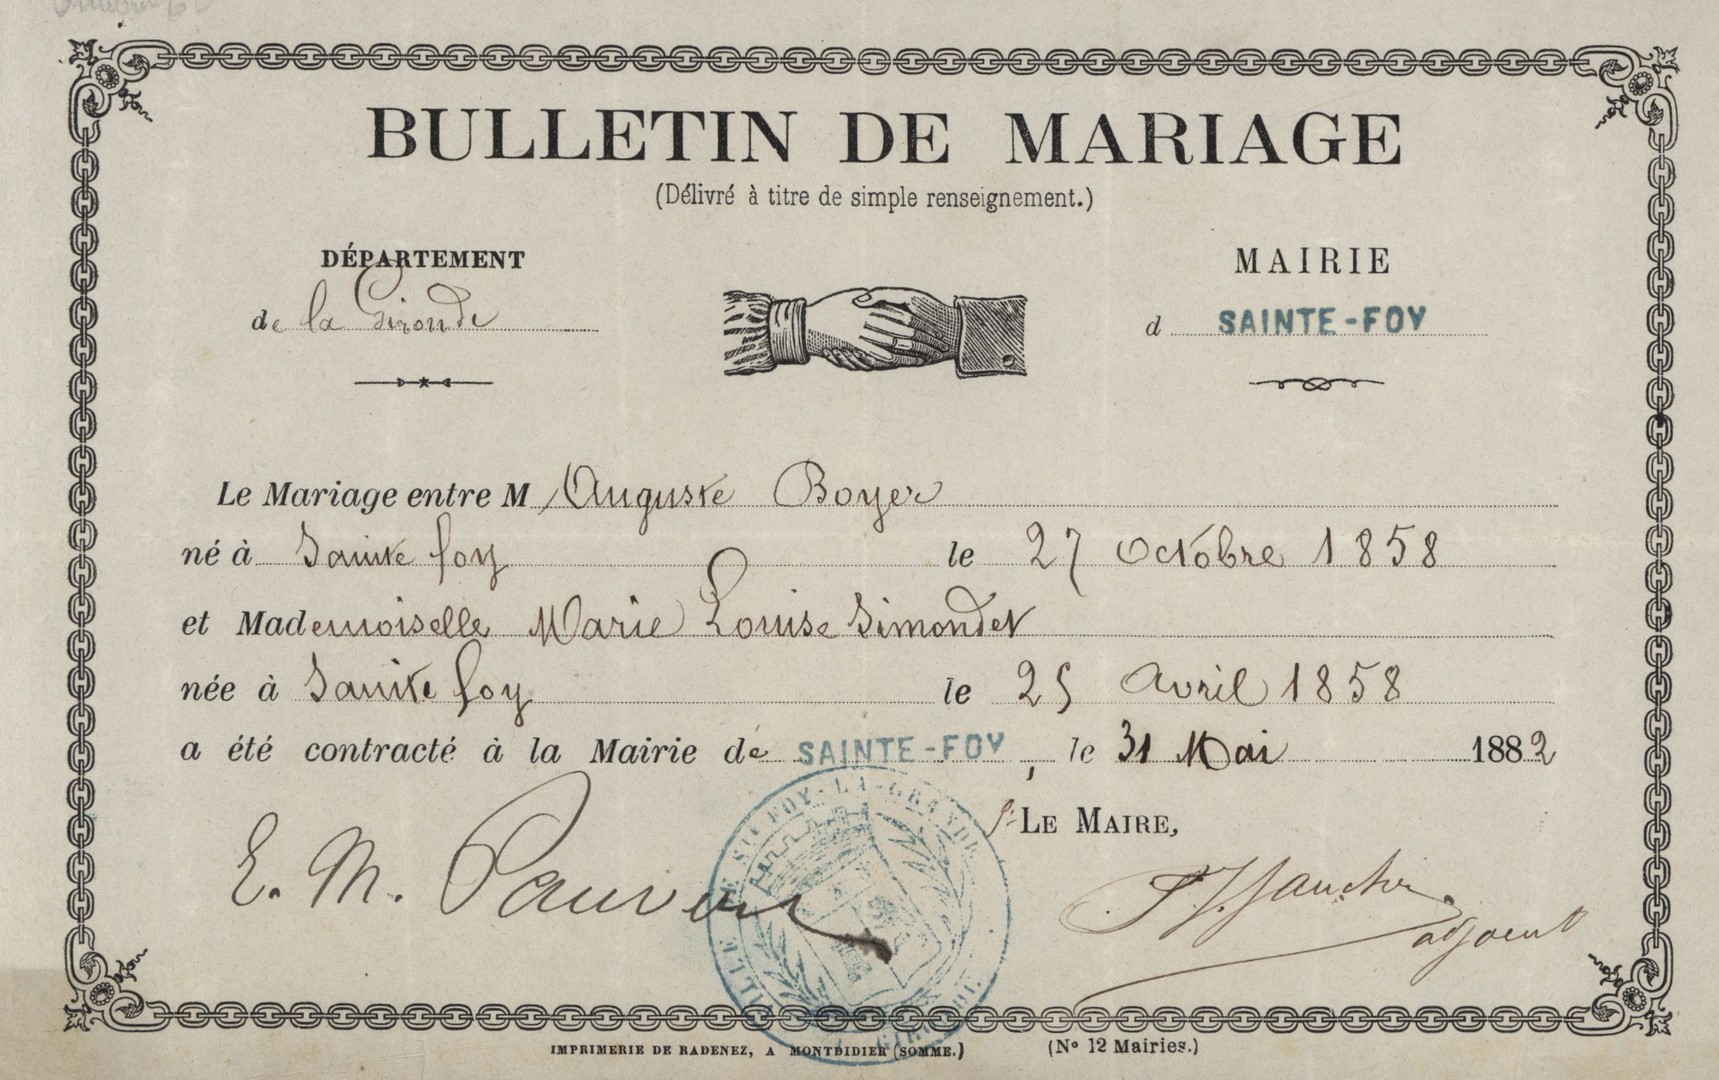 BULLETIN DE MARIAGE
(Délivré à titre de simple renseignement.)
DÉPARTEMENT
de la Gironde
MAIRIE
d SAINTE-FOY
Le Mariage entre M Auguste Boyer
né à Sainte foy le 27 Octobre 1858
et Mademoiselle Marie Louise Simondet
née à Sainte foy le 25 Avril 1858
a été contracté à la Mairie de SAINTE-FOY, le 31 Mai 1882
pr LE MAIRE,
E. M.
adjoint
VILLE DE STE FOY-LA-GRANDE
GIRONDE
IMPRIMERIE DE RADENEZ, A MONTDIDIER (SOMME.)
(No 12 Mairies.)